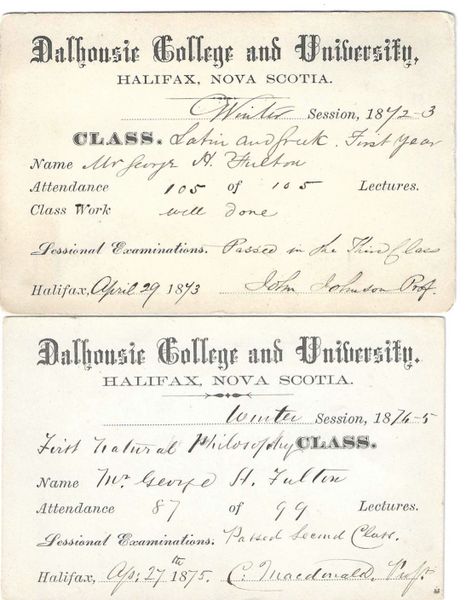 Dalhousie College and University,
HALIFAX, NOVA SCOTIA.
Winter Session, 1872-3
CLASS. Latin and Greek. First Year
Name Mr George H. Fulton
Attendance 105 of 105 Lectures.
Class Work well done
Sessional Examinations. Passed in the Third Class
Halifax, April 29 1873 John Johnson Prof.
Dalhousie College and University,
HALIFAX, NOVA SCOTIA.
Winter Session, 1874-5
First Natural Philosophy CLASS.
Name Mr George H. Fulton
Attendance 87 of 99 Lectures.
Sessional Examinations. Passed Second Class.
Halifax, Apr: 27th 1875. C. Macdonald, Prof.